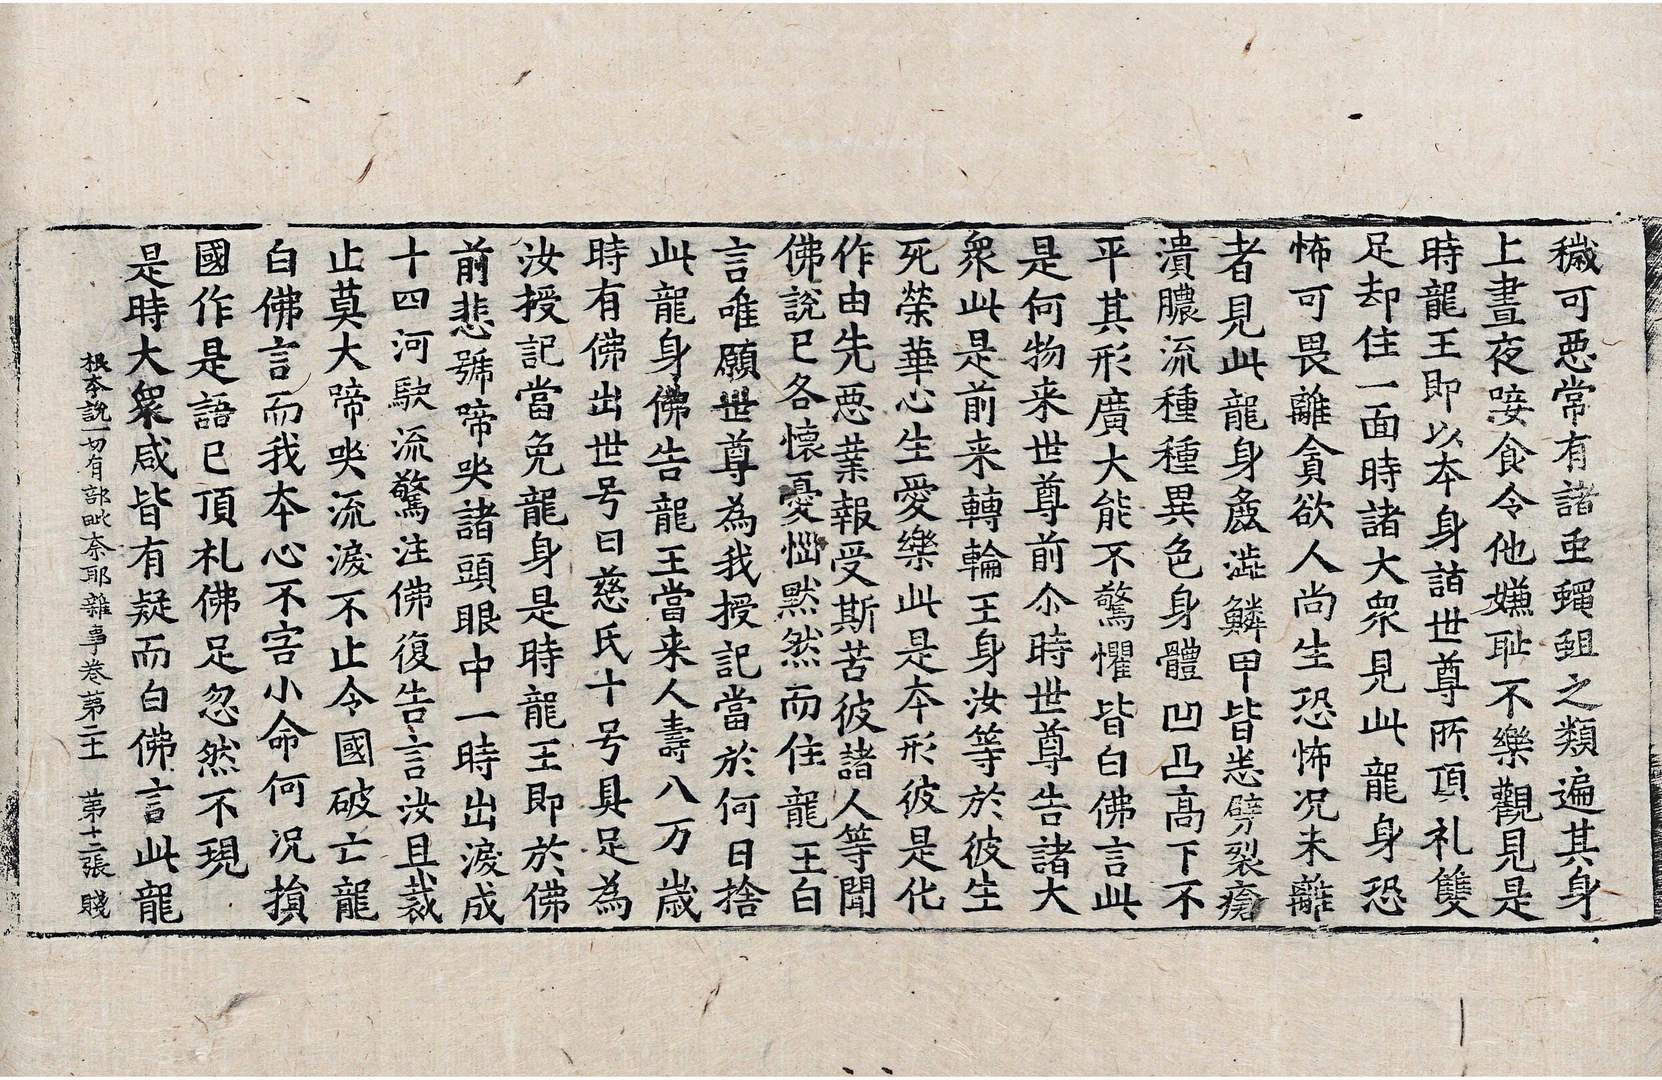 穢可惡常有諸虫蠅蛆之類遍其身
上晝夜唼食令他嫌耻不樂觀見是
時龍王即以本身詣世尊所頂礼雙
足却住一面時諸大衆見此龍身恐
怖可畏離貪欲人尚生恐怖况未離
者見此龍身麁澁鱗甲皆悉劈裂瘡
潰膿流種種異色身體凹凸高下不
平其形廣大能不驚懼皆白佛言此
是何物来世尊前尒時世尊告諸大
衆此是前来轉輪王身汝等於彼生
死榮華心生愛樂此是本形彼是化
作由先惡業報受斯苦彼諸人等聞
佛說已各懷憂惱默然而住龍王白
言唯願世尊為我授記當於何日捨
此龍身佛告龍王當来人壽八万歲
時有佛出世号曰慈氏十号具足為
汝授記當免龍身是時龍王即於佛
前悲號啼哭諸頭眼中一時出淚成
十四河駛流驚注佛復告言汝且裁
止莫大啼哭流淚不止令國破亡龍
白佛言而我本心不害小命何况損
國作是語已頂礼佛足忽然不現
是時大衆咸皆有疑而白佛言此龍
根本說一切有部毗奈耶雜事卷第二十一 第十二張 賤